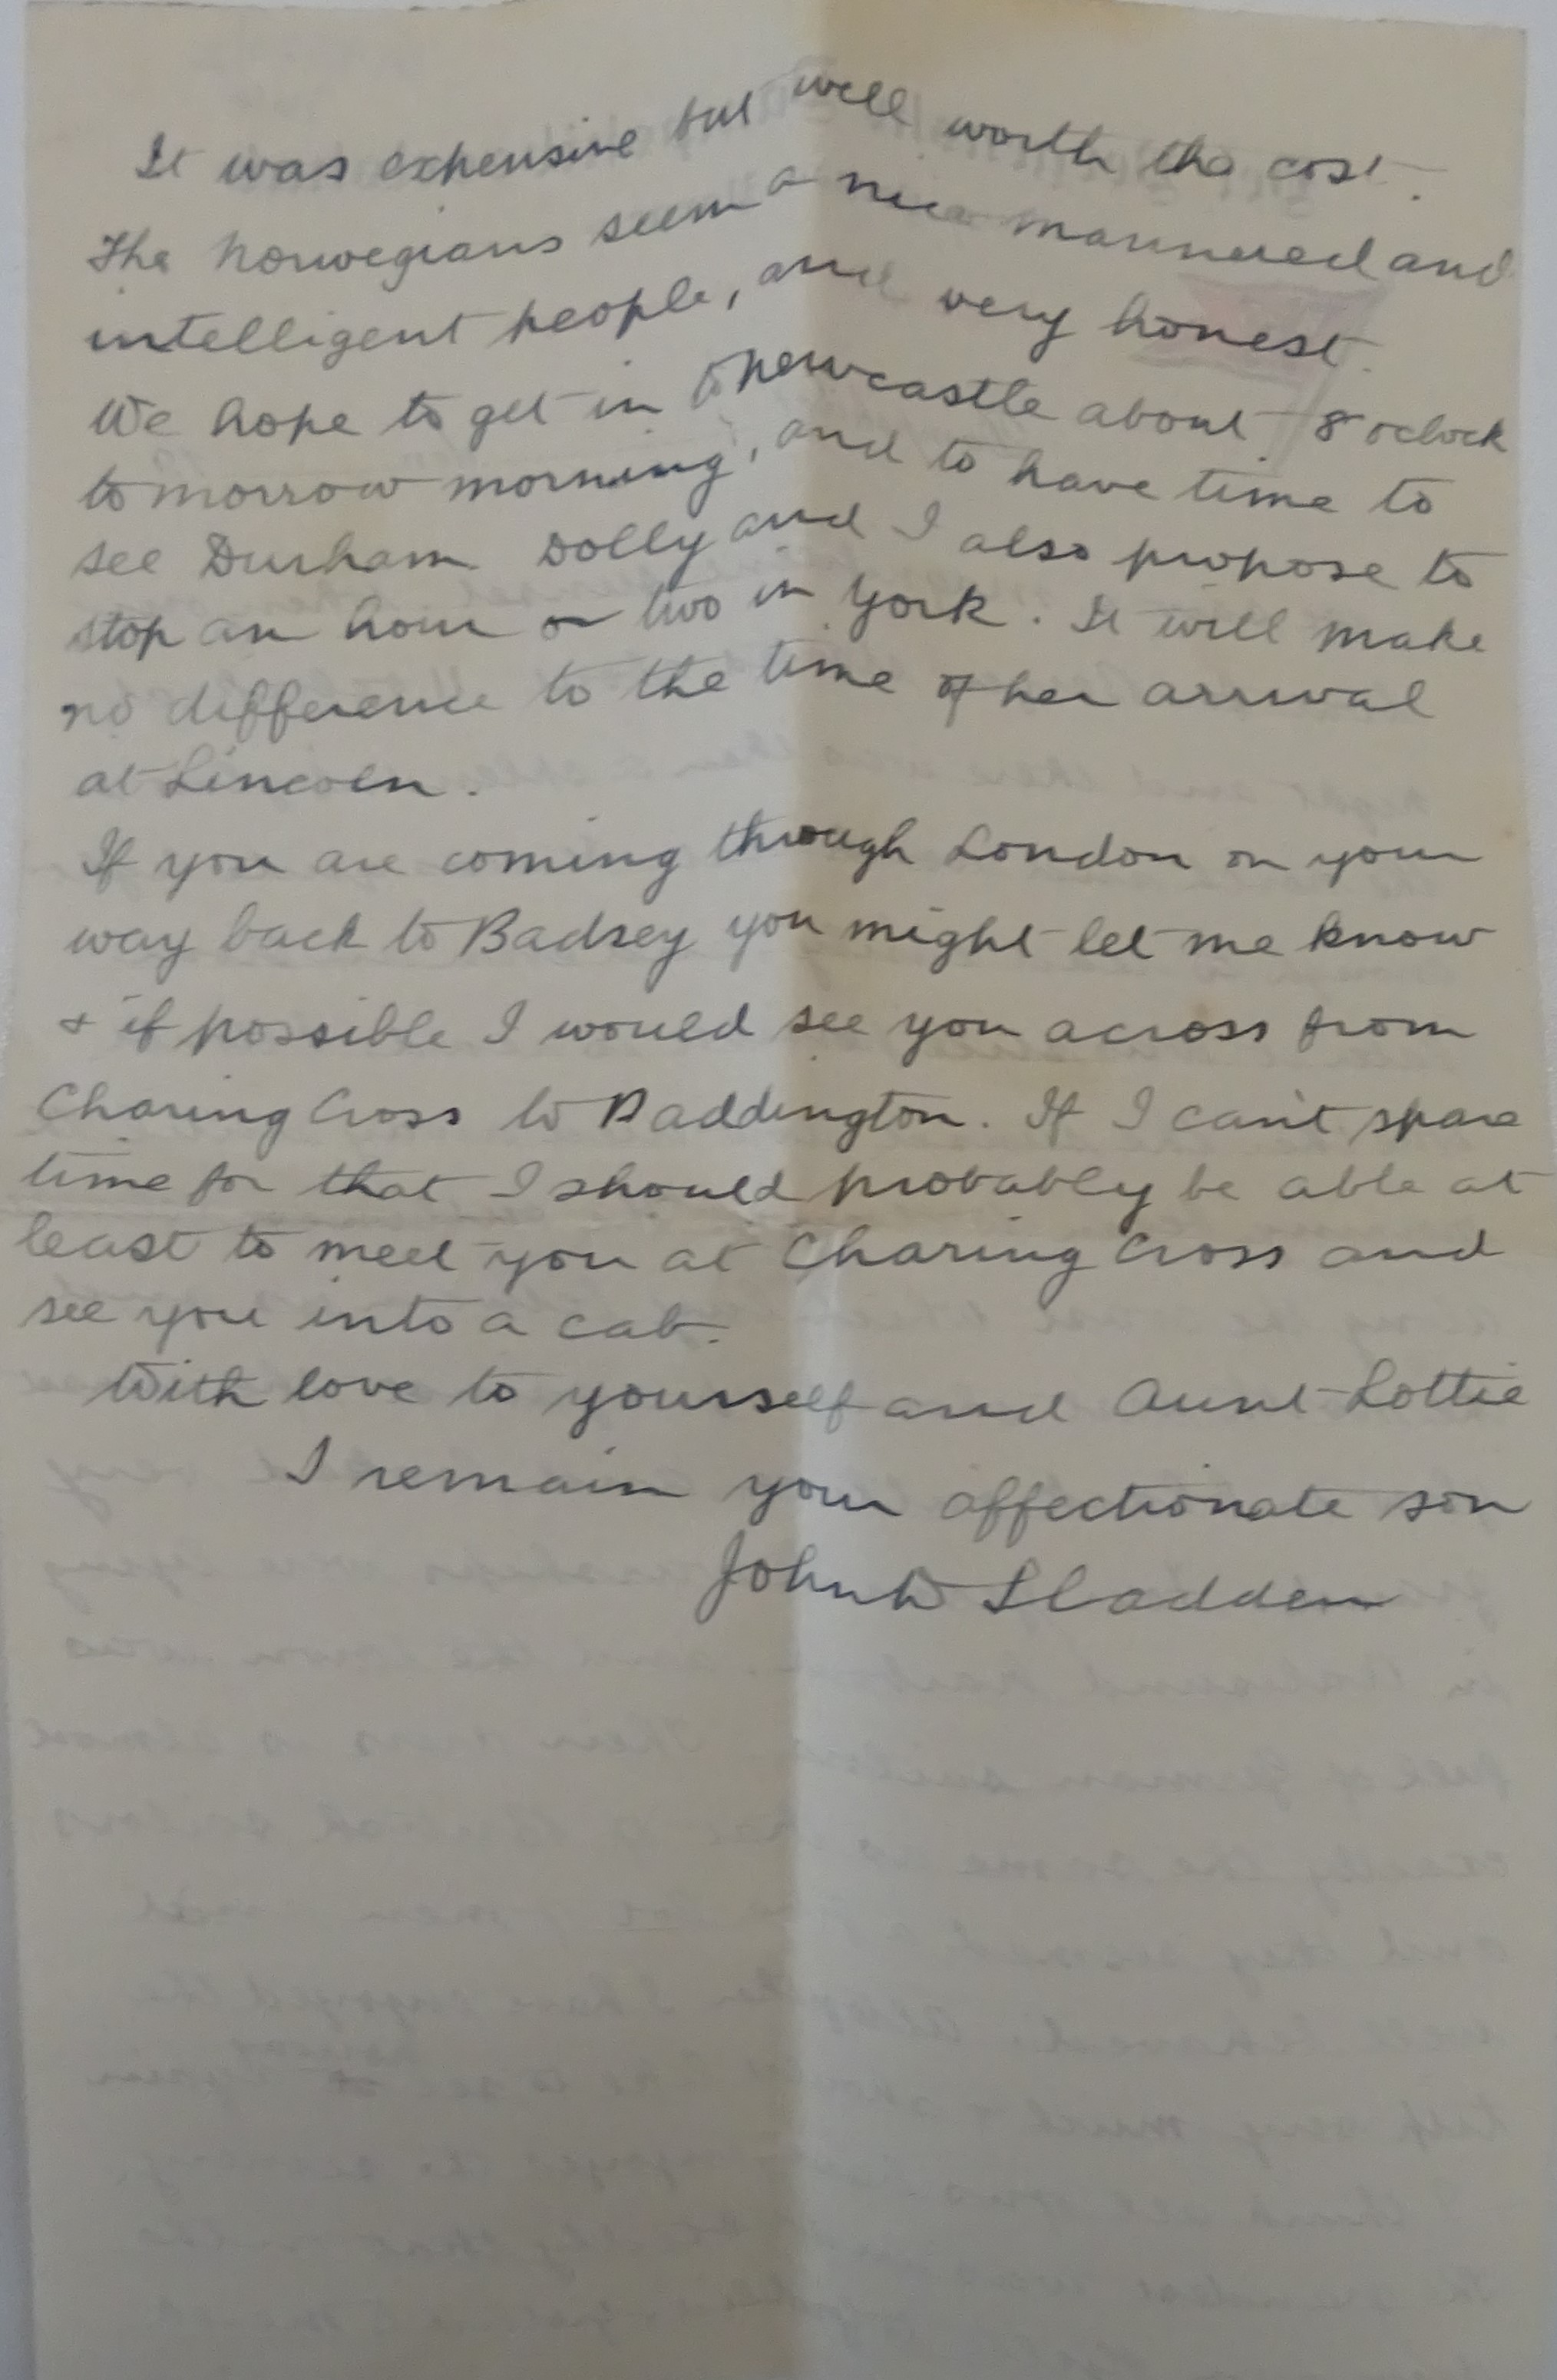 It was expensive but well worth the cost.
The Norwegians seem a nice mannered and
intelligent people, and very honest.
We hope to get in to Newcastle about 8 oclock
tomorrow morning, and to have time to
see Durham Dolly and I also propose to
stop an hour or two in York. It will make
no difference to the time of her arrival
at Lincoln.
If you are coming through London on your
way back to Badsey you might let me know
& if possible I would see you across from
Charing Cross to Paddington. If I can't spare
time for that I should probably be able at
least to meet you at Charing Cross and
see you into a cab.
With love to yourself and Aunt Lottie
I remain your affectionate son
John W Sladden